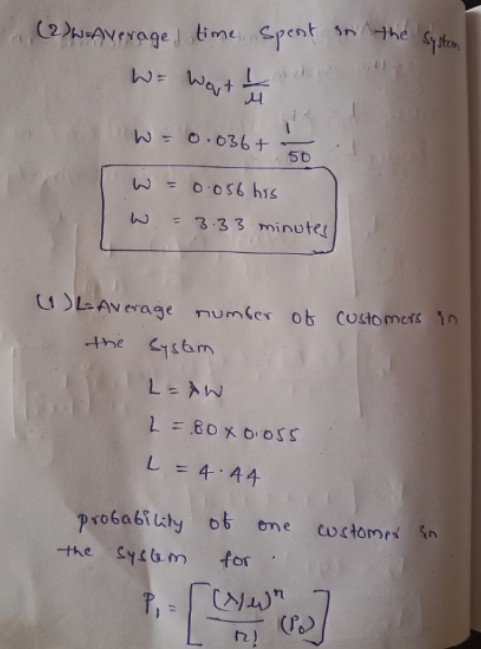 (2) W=Average time spent in the System
W = Wq + 1/μ
W = 0.036 + 1/50
W = 0.056 hrs
W = 3.33 minutes
(1) L=Average number of customers in
the system
L = λW
L = 80 x 0.055
L = 4.44
probability of one customer in
the system for
P₁ = [ (λ/μ)ⁿ / n! (P₀) ]